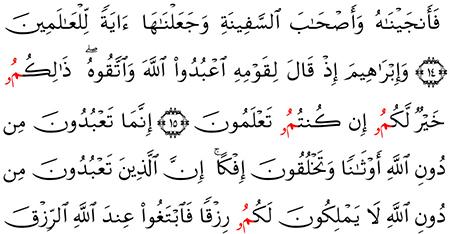 فَأَنجَيْنَٰهُ وَأَصْحَٰبَ السَّفِينَةِ وَجَعَلْنَٰهَا ءَايَةً لِّلْعَٰلَمِينَ
﴿١٤﴾ وَإِبْرَٰهِيمَ إِذْ قَالَ لِقَوْمِهِ اعْبُدُواْ اللَّهَ وَاتَّقُوهُۖ ذَٰلِكُمُۥ
خَيْرٌ لَّكُمُۥ إِن كُنتُمُۥ تَعْلَمُونَ ﴿١٥﴾ إِنَّمَا تَعْبُدُونَ مِن
دُونِ اللَّهِ أَوْثَٰنًا وَتَخْلُقُونَ إِفْكًاۚ إِنَّ الَّذِينَ تَعْبُدُونَ مِن
دُونِ اللَّهِ لَا يَمْلِكُونَ لَكُمُۥ رِزْقًا فَابْتَغُواْ عِندَ اللَّهِ الرِّزْقَ